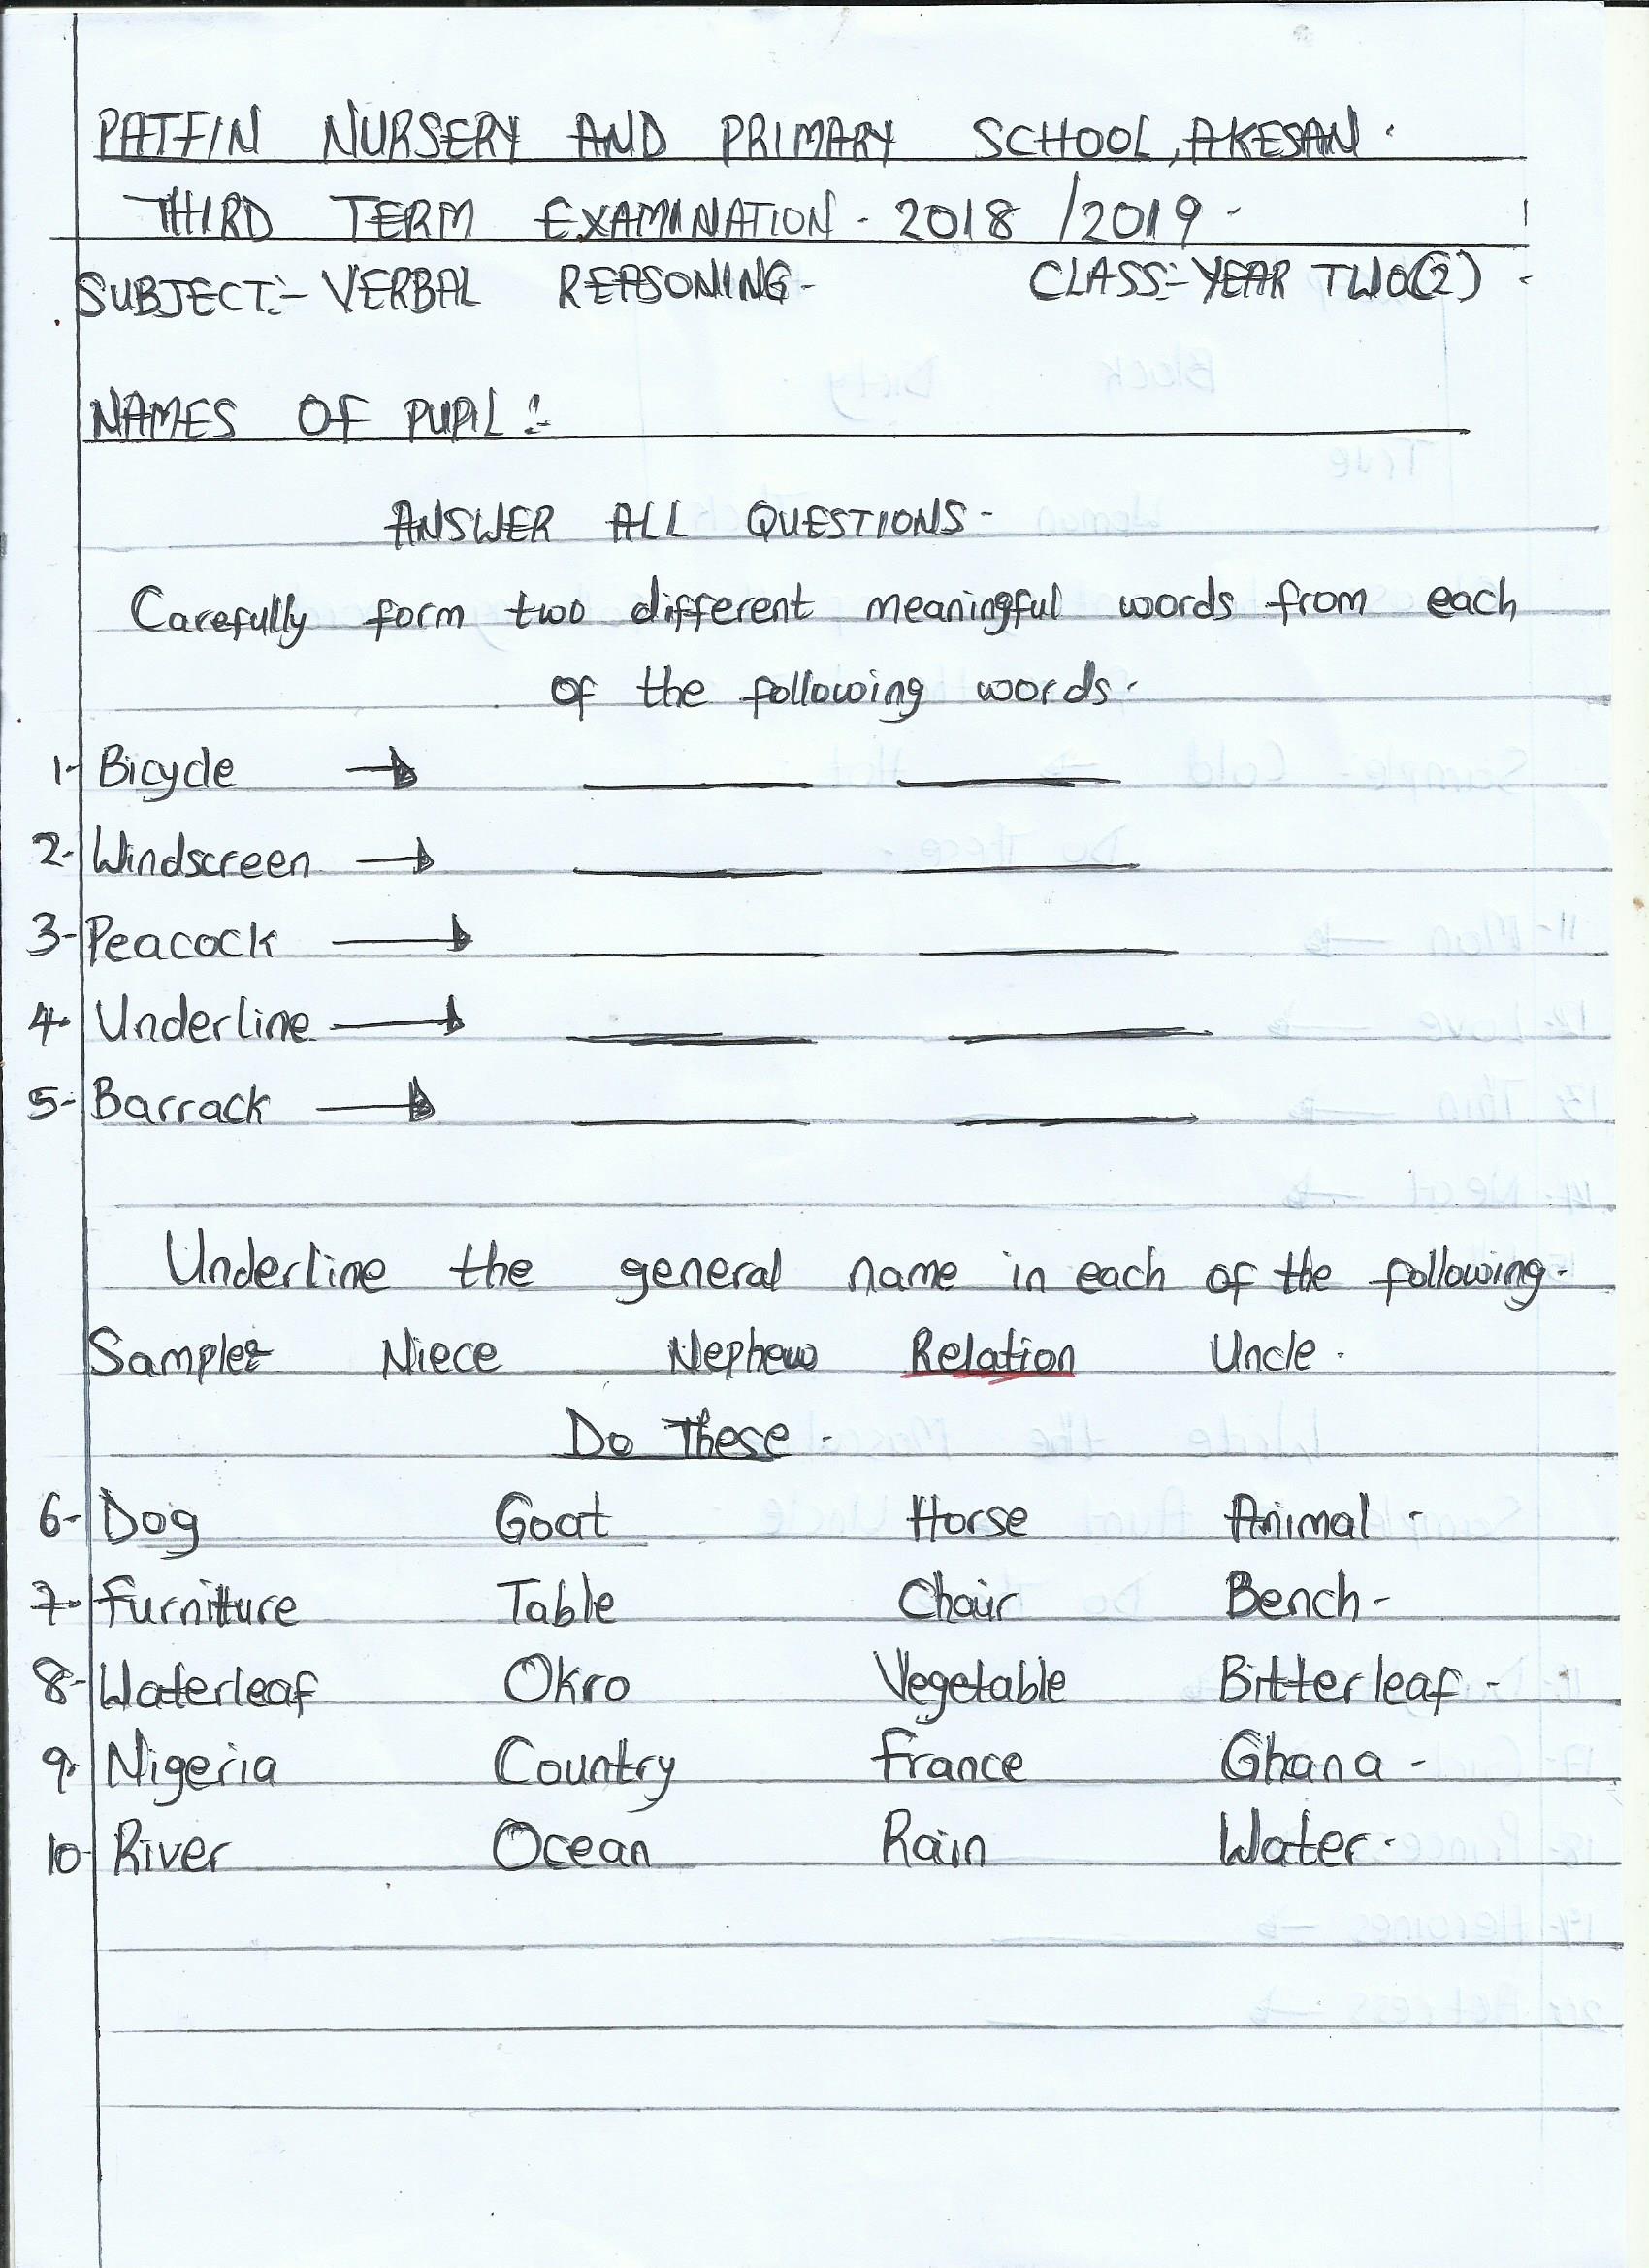 PATFIN NURSERY AND PRIMARY SCHOOL, AKESAN.
THIRD TERM EXAMINATION - 2018 /2019 -
SUBJECT:- VERBAL REASONING - CLASS:- YEAR TWO(2) -
NAMES OF PUPIL :-
ANSWER ALL QUESTIONS -
Carefully form two different meaningful words from each
of the following words.
1- Bicycle → ______ ______
2- Windscreen → ______ ______
3- Peacock → ______ ______
4- Underline → ______ ______
5- Barrack → ______ ______
Underline the general name in each of the following.
Sample:- Niece Nephew Relation Uncle.
Do These -
6- Dog Goat Horse Animal -
7- Furniture Table Chair Bench -
8- Waterleaf Okro Vegetable Bitterleaf -
9- Nigeria Country France Ghana -
10- River Ocean Rain Water.